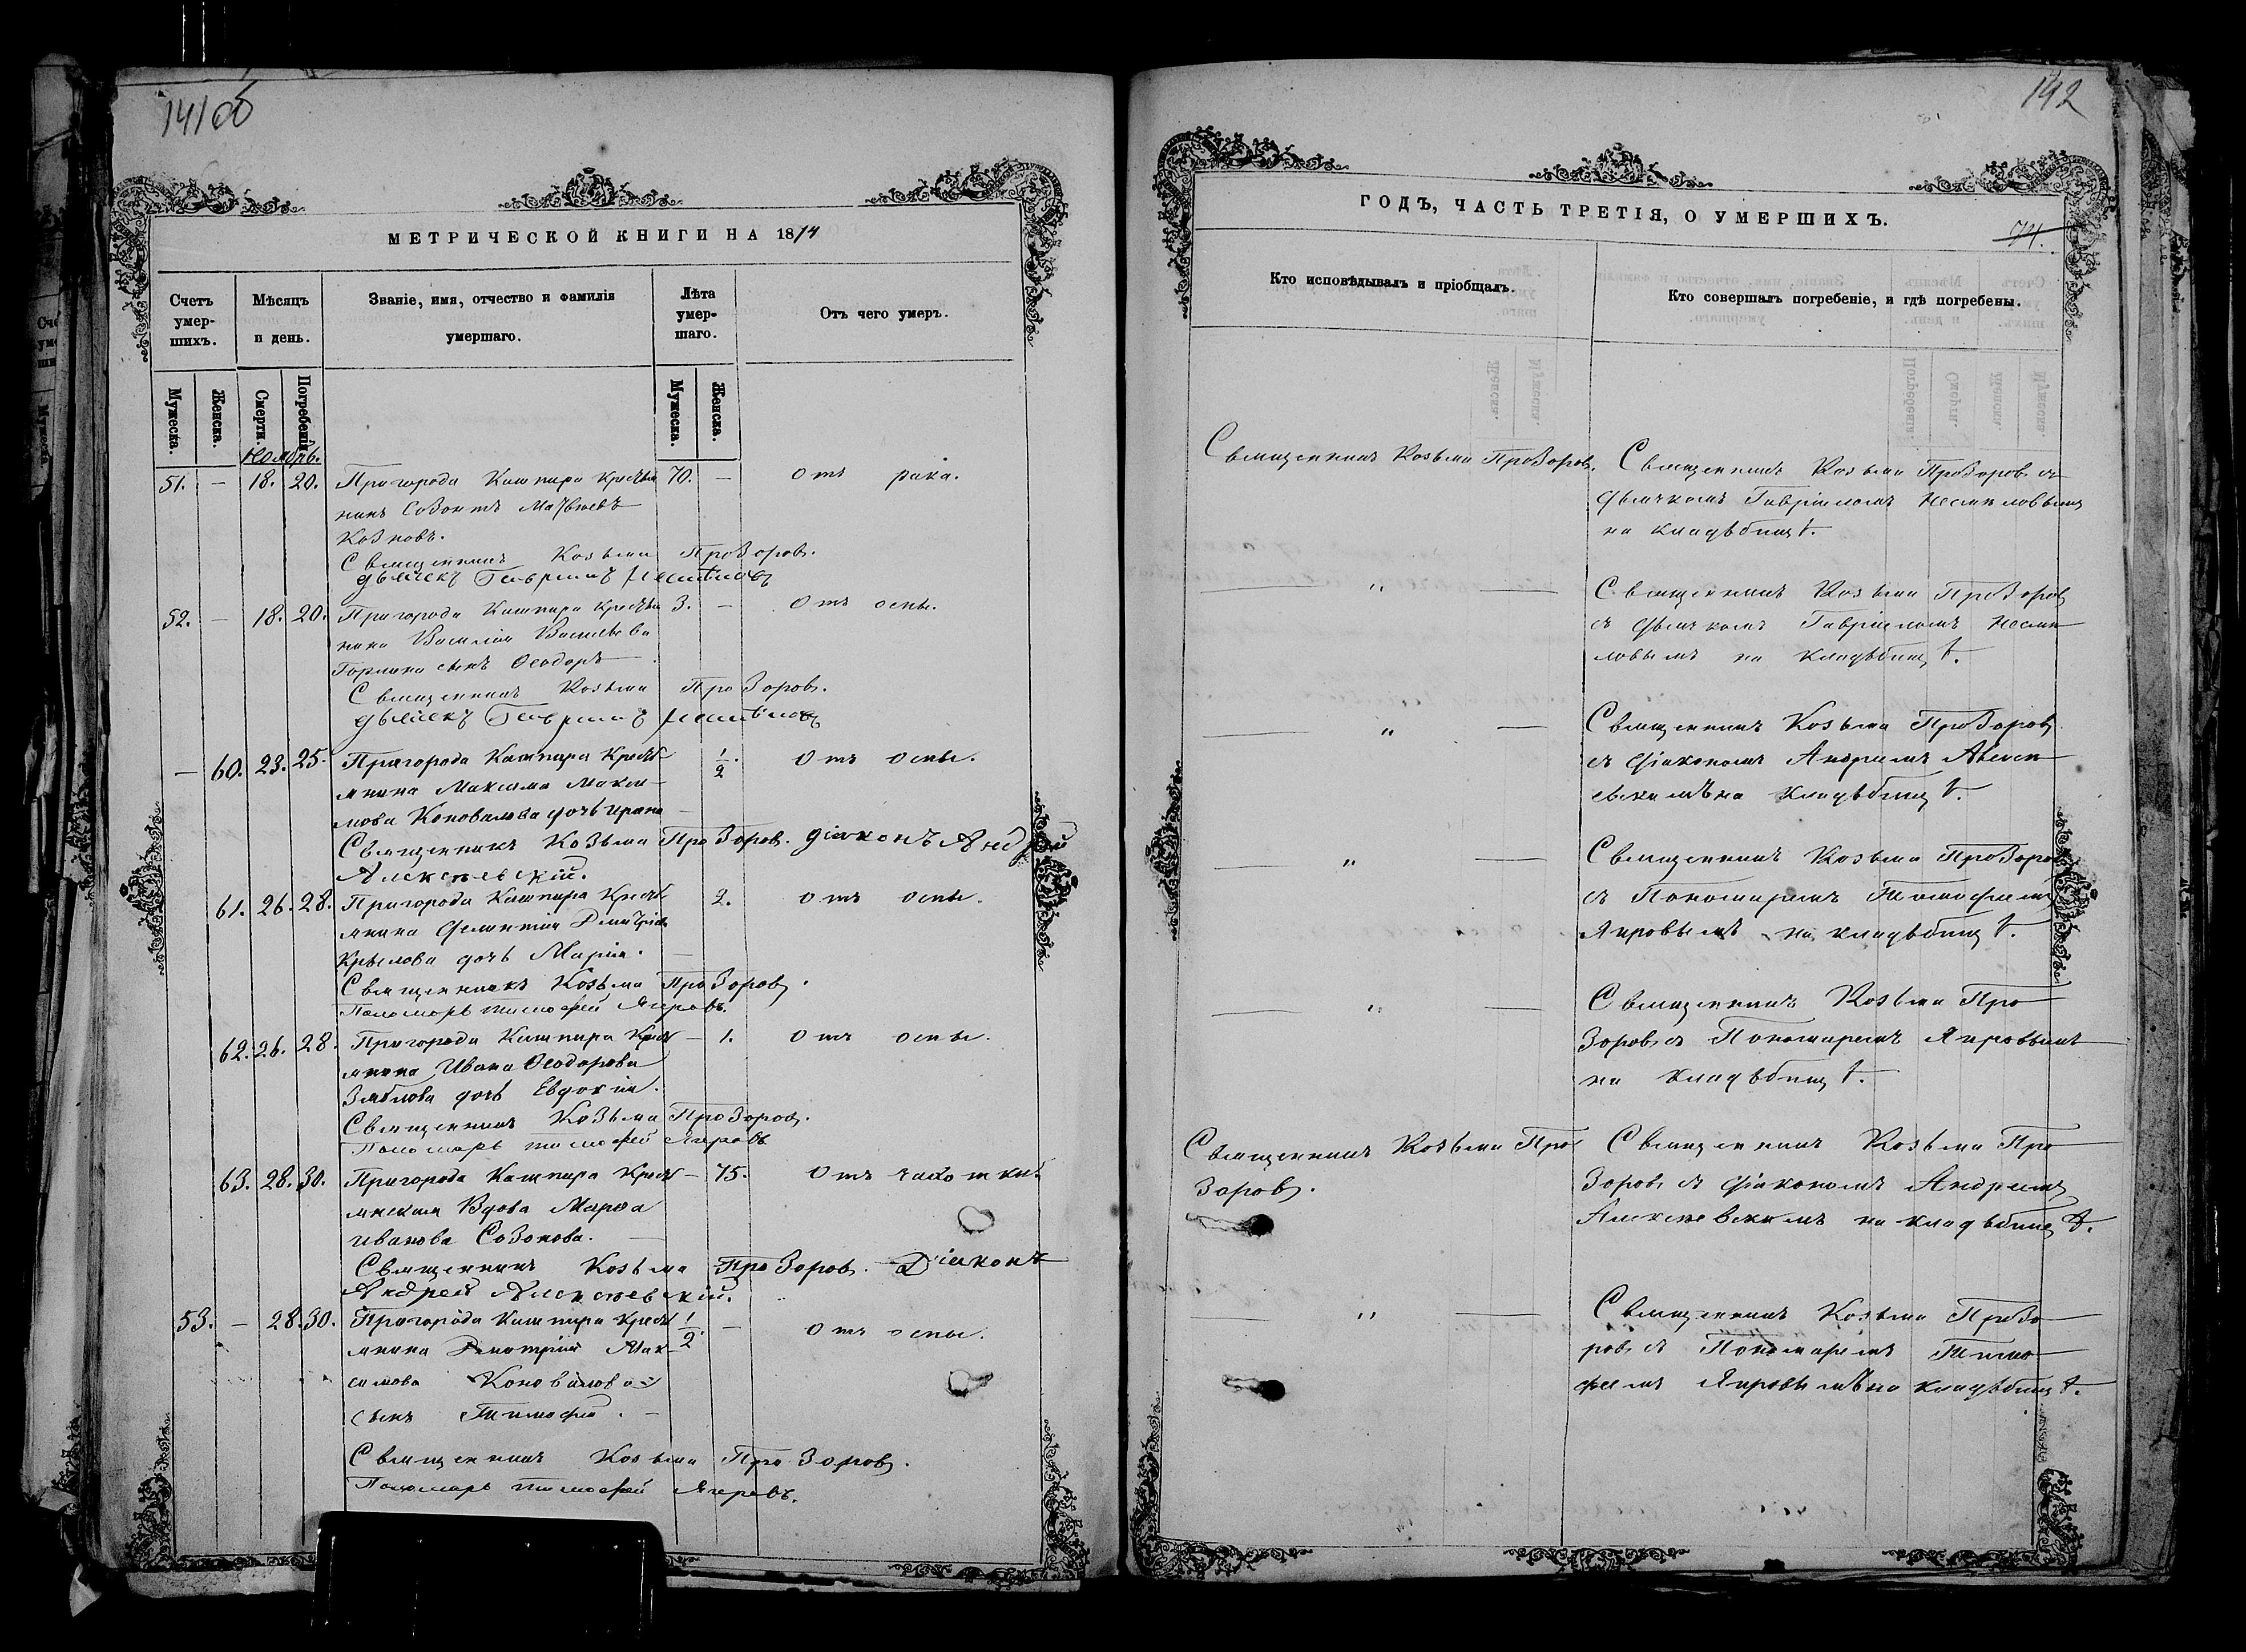 141об
МЕТРИЧЕСКОЙ КНИГИ НА 1874
Счетъ умер-шихъ.
Мѣсяцъ и день.
Званіе, имя, отчество и фамилія умершаго.
Лѣта умер-шаго.
Отъ чего умеръ.
Мужеска. Женска. Смерти. Погребенія. Мужеска. Женска.
Ноябрь.
51. — 18. 20. Пригорода Кашпира Крестья 70. — отъ рака.
нинъ Созонтъ
Козловъ.
Священникъ Козьма Прозоровъ.
дьячекъ Гавріилъ
52. — 18. 20. Пригорода Кашпира Крестья 3. — отъ оспы.
нина Василія Васильева
сынъ Ѳеодоръ
Священникъ Козьма Прозоровъ.
дьячекъ Гавріилъ
— 60. 23. 25. Пригорода Кашпира Кресть 1/2. отъ оспы.
янина Максима Макси
мова Коновалова дочь
Священникъ Козьма Прозоровъ. діаконъ Андрей
Алексѣевскій.
61. 26. 28. Пригорода Кашпира Кресть 2. отъ оспы.
янина Дмитріева
Крылова дочь Марія.
Священникъ Козьма Прозоровъ.
Пономарь Тимофей Яировъ.
62. 26. 28. Пригорода Кашпира Кресть — 1. отъ оспы.
янина Ивана Ѳеодорова
Зяблова дочь Евдокія.
Священникъ Козьма Прозоровъ.
Пономарь Тимофей Яировъ
63. 28. 30. Пригорода Кашпира Кресть — 75. отъ чахотки.
янская Вдова Марѳа
Иванова Созонова.
Священникъ Козьма Прозоровъ. Діаконъ
Андрей Алексѣевскій.
53. — 28. 30. Пригорода Кашпира Кресть 1/2. — отъ оспы.
янина Дмитрія Мак
симова Коновалова
сынъ Тимофей.
Священникъ Козьма Прозоровъ.
Пономарь Тимофей Яировъ.
142
ГОДЪ, ЧАСТЬ ТРЕТІЯ, О УМЕРШИХЪ.
74.
Кто исповѣдывалъ и пріобщалъ.
Кто совершалъ погребеніе, и гдѣ погребены.
Священникъ Козьма Прозоровъ. Священникъ Козьма Прозоровъ съ
дьячкомъ Гавріиломъ
на кладбищѣ.
— „ — Священникъ Козьма Прозоровъ
съ дьячкомъ Гавріиломъ
на кладбищѣ.
— „ — Священникъ Козьма Прозоровъ
съ діакономъ Андреемъ Алексѣ
евскимъ на кладбищѣ.
— „ — Священникъ Козьма Прозоровъ
съ Пономаремъ Тимофеемъ
Яировымъ на кладбищѣ.
— „ — Священникъ Козьма Про
зоровъ съ Пономаремъ Яировымъ
на кладбищѣ.
Священникъ Козьма Про Священникъ Козьма Про
зоровъ. зоровъ съ діакономъ Андреемъ
Алексѣевскимъ на кладбищѣ.
— „ — Священникъ Козьма Прозо
ровъ съ Пономаремъ Тимо
феемъ Яировымъ на кладбищѣ.